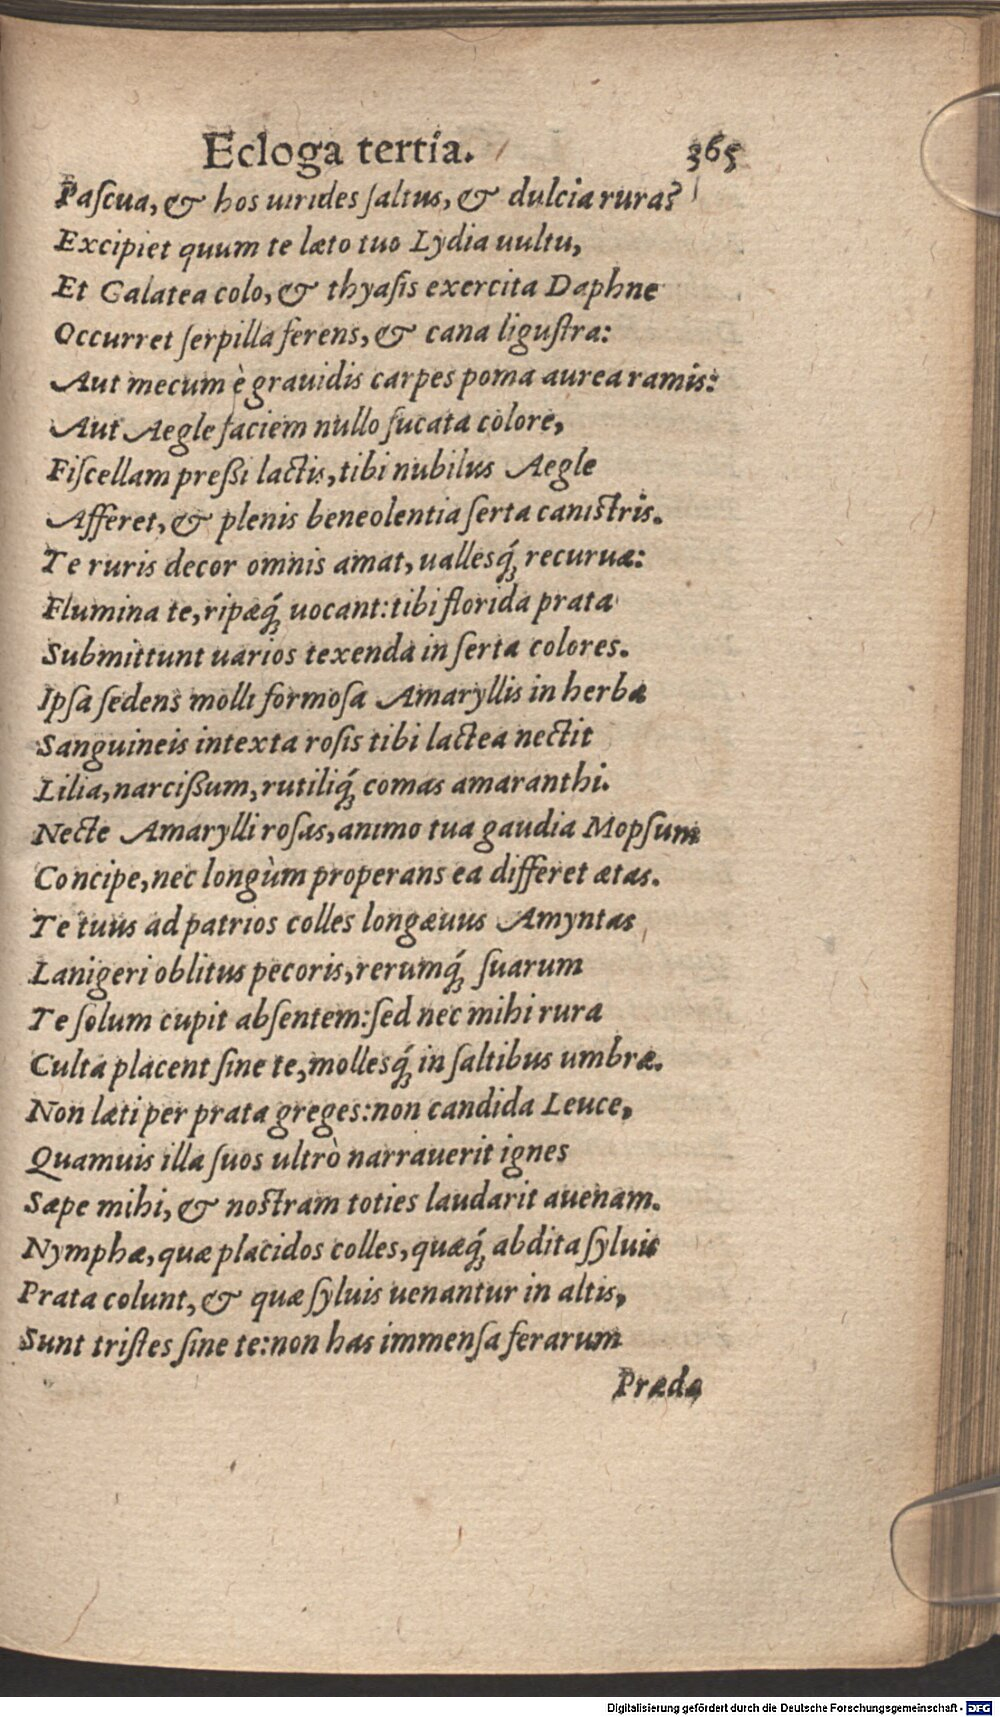 Ecloga tertia. 365
Paſcua, & hos uirides ſaltus, & dulcia rura?
Excipiet quum te læto tuo Lydia uultu,
Et Galatea colo, & thyaſis exercita Daphne
Occurret ſerpilla ferens, & cana liguſtra:
Aut mecum è grauidis carpes poma aurea ramis:
Aut Aegle faciem nullo fucata colore,
Fiſcellam preßi lactis, tibi nubilus Aegle
Afferet, & plenis beneolentia ſerta caniſtris.
Te ruris decor omnis amat, uallesq́; recuruæ:
Flumina te, ripæq́; uocant: tibi florida prata
Submittunt uarios texenda in ſerta colores.
Ipſa ſedens molli formoſa Amaryllis in herba
Sanguineis intexta roſis tibi lactea nectit
Lilia, narcißum, rutiliq́; comas amaranthi.
Necte Amarylli roſas, animo tua gaudia Mopſum
Concipe, nec longùm properans ea differet ætas.
Te tuus ad patrios colles longæuus Amyntas
Lanigeri oblitus pecoris, rerumq́; ſuarum
Te ſolum cupit abſentem: ſed nec mihi rura
Culta placent ſine te, mollesq́; in ſaltibus umbræ.
Non læti per prata greges: non candida Leuce,
Quamuis illa ſuos ultrò narrauerit ignes
Sæpe mihi, & noſtram toties laudarit auenam.
Nymphæ, quæ placidos colles, quæq́; abdita ſyluis
Prata colunt, & quæ ſyluis uenantur in altis,
Sunt triſtes ſine te: non has immenſa ferarum
Præda
Digitalisierung gefördert durch die Deutsche Forschungsgemeinschaft - DFG